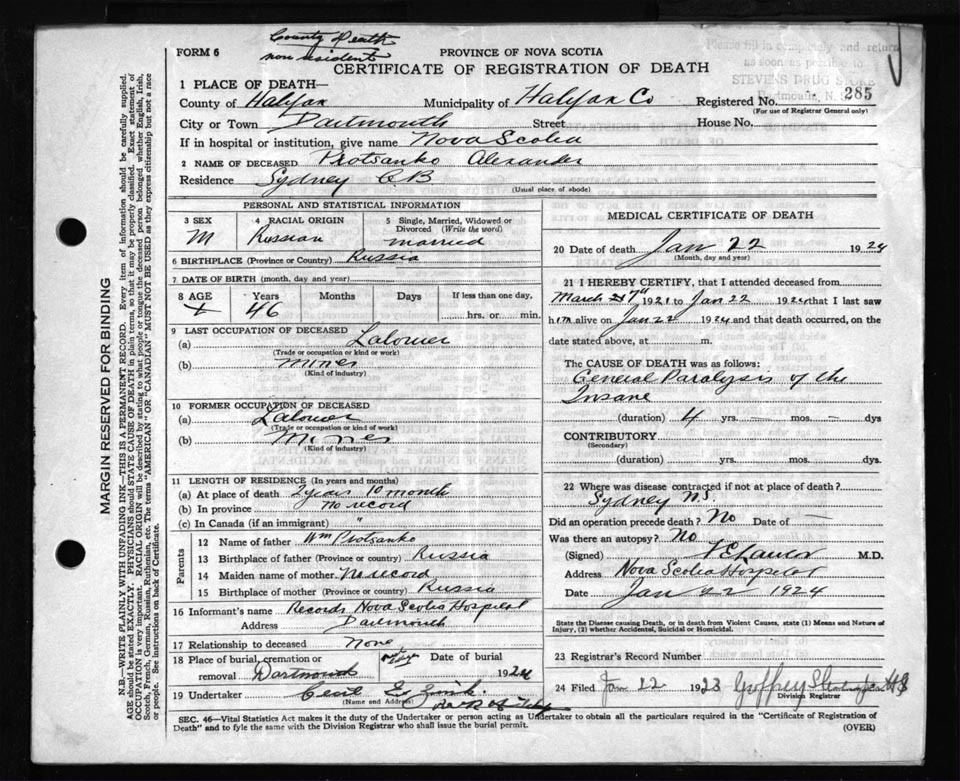 County Death
non resident
FORM 6
PROVINCE OF NOVA SCOTIA
CERTIFICATE OF REGISTRATION OF DEATH
Please fill in completely and return
as soon as possible to
STEVENS DRUG STORE
Dartmouth, N.
1 PLACE OF DEATH—
County of Halifax Municipality of Halifax Co Registered No. 285
(For use of Registrar General only)
City or Town Dartmouth Street House No.
If in hospital or institution, give name Nova Scotia
2 NAME OF DECEASED Protsanko Alexander
Residence Sydney C B
(Usual place of abode)
PERSONAL AND STATISTICAL INFORMATION
3 SEX
M
4 RACIAL ORIGIN
Russian
5 Single, Married, Widowed or
Divorced (Write the word)
married
6 BIRTHPLACE (Province or Country) Russia
7 DATE OF BIRTH (month, day and year)
8 AGE Years Months Days If less than one day,
46 hrs. or min.
9 LAST OCCUPATION OF DECEASED
(a) Labourer
(Trade or occupation or kind or work)
(b) Mines
(Kind of industry)
10 FORMER OCCUPATION OF DECEASED
(a) Labourer
(Trade or occupation or kind of work)
(b) Mines
(Kind of industry)
11 LENGTH OF RESIDENCE (In years and months)
(a) At place of death 2 years 10 month
(b) In province no record
(c) In Canada (if an immigrant) "
Parents
12 Name of father Wm Protsanko
13 Birthplace of father (Province or country) Russia
14 Maiden name of mother No record
15 Birthplace of mother (Province or country) Russia
16 Informant's name Records Nova Scotia Hospital
Address Dartmouth
17 Relationship to deceased None
18 Place of burial, cremation or
removal Dartmouth
Date of burial
1924
19 Undertaker Cecil E. Zink
(Name and Address)
MEDICAL CERTIFICATE OF DEATH
20 Date of death Jan 22 1924
(Month, day and year)
21 I HEREBY CERTIFY, that I attended deceased from
March 27th 1921 to Jan 22 1924 that I last saw
him alive on Jan 22 1924 and that death occurred, on the
date stated above, at m.
The CAUSE OF DEATH was as follows:
General Paralysis of the
Insane
(duration) 4 yrs. — mos. — dys
CONTRIBUTORY
(Secondary)
(duration) yrs. mos. dys.
22 Where was disease contracted if not at place of death?
Sydney N.S
Did an operation precede death? No Date of —
Was there an autopsy? No
(Signed) M.D.
Address Nova Scotia Hospital
Date Jan 22 1924
State the Disease causing Death, or in death from Violent Causes, state (1) Means and Nature of
Injury, (2) whether Accidental, Suicidal or Homicidal.
23 Registrar's Record Number
24 Filed Jan 22 1923 Geoffrey
Division Registrar
SEC. 46—Vital Statistics Act makes it the duty of the Undertaker or person acting as Undertaker to obtain all the particulars required in the "Certificate of Registration of
Death" and to fyle the same with the Division Registrar who shall issue the burial permit.
(OVER)
MARGIN RESERVED FOR BINDING
N.B.—WRITE PLAINLY WITH UNFADING INK—THIS IS A PERMANENT RECORD. Every item of information should be carefully supplied.
AGE should be stated EXACTLY. PHYSICIANS should STATE CAUSE OF DEATH in plain terms, so that it may be properly classified. Exact statement of
OCCUPATION is very important. RACIAL ORIGIN will be described by stating to what people or tongue the deceased person belonged whether English, Irish,
Scotch, French, German, Russian, Ruthenian, etc. The terms "AMERICAN" OR "CANADIAN" MUST NOT BE USED as they express citizenship but not a race
or people. See instructions on back of Certificate.